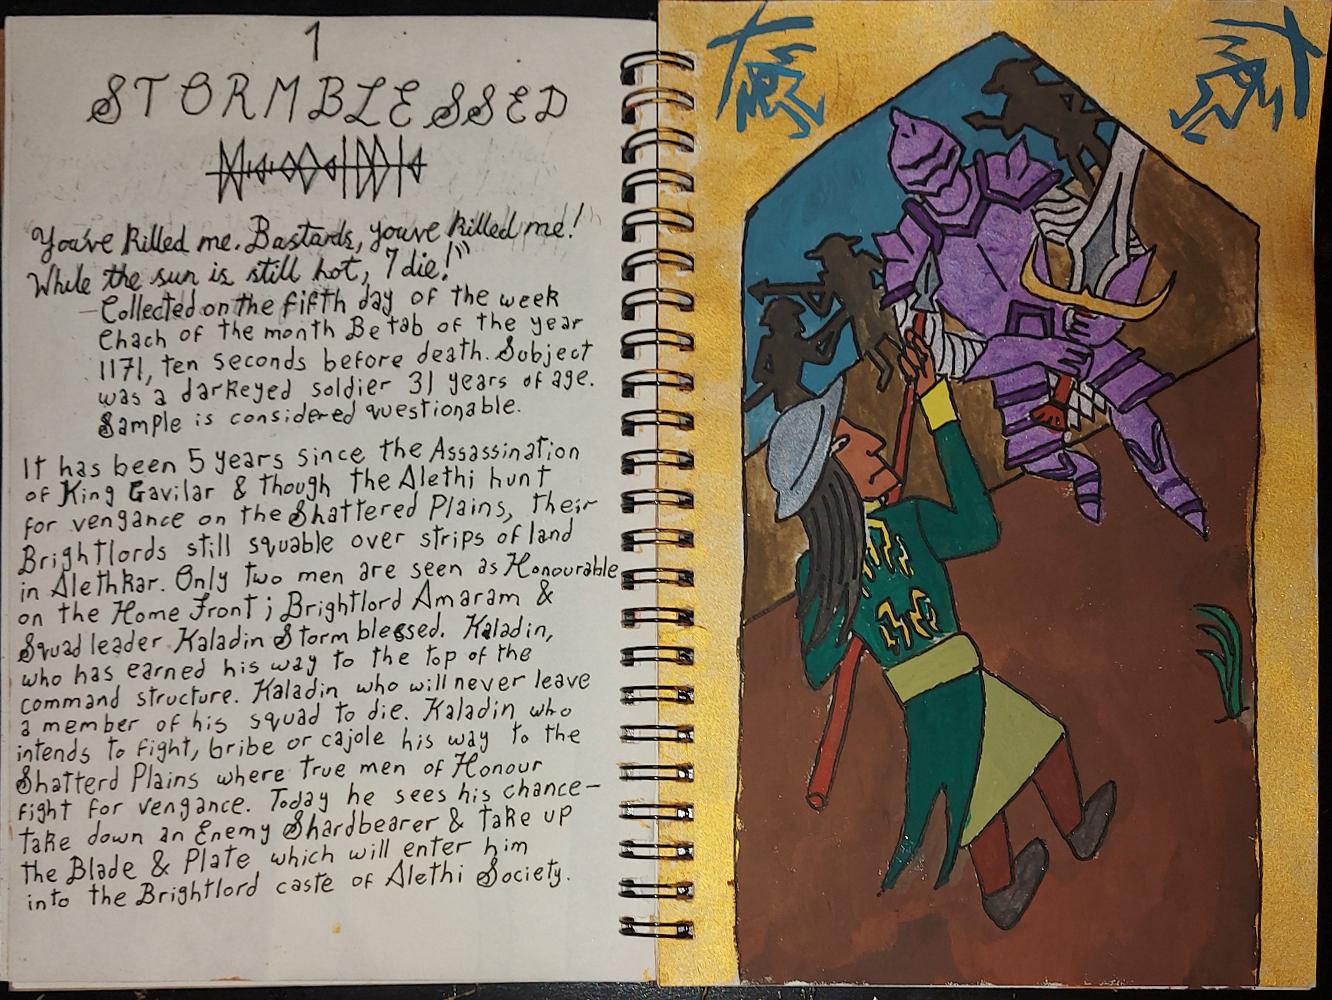 1
STORMBLESSED
You've killed me. Bastards, you've killed me!
While the sun is still hot, I die!"
—Collected on the fifth day of the week
Chach of the month Betab of the year
1171, ten seconds before death. Subject
was a darkeyed soldier 31 years of age.
Sample is considered questionable.
It has been 5 years since the Assassination
of King Gavilar & though the Alethi hunt
for vengance on the Shattered Plains, their
Brightlords still squable over strips of land
in Alethkar. Only two men are seen as Honourable
on the Home front; Brightlord Amaram &
Squadleader Kaladin Stormblessed. Kaladin,
who has earned his way to the top of the
command structure. Kaladin who will never leave
a member of his squad to die. Kaladin who
intends to fight, bribe or cajole his way to the
Shatterd Plains where true men of Honour
fight for vengance. Today he sees his chance—
take down an Enemy Shardbearer & take up
the Blade & Plate which will enter him
into the Brightlord caste of Alethi Society.